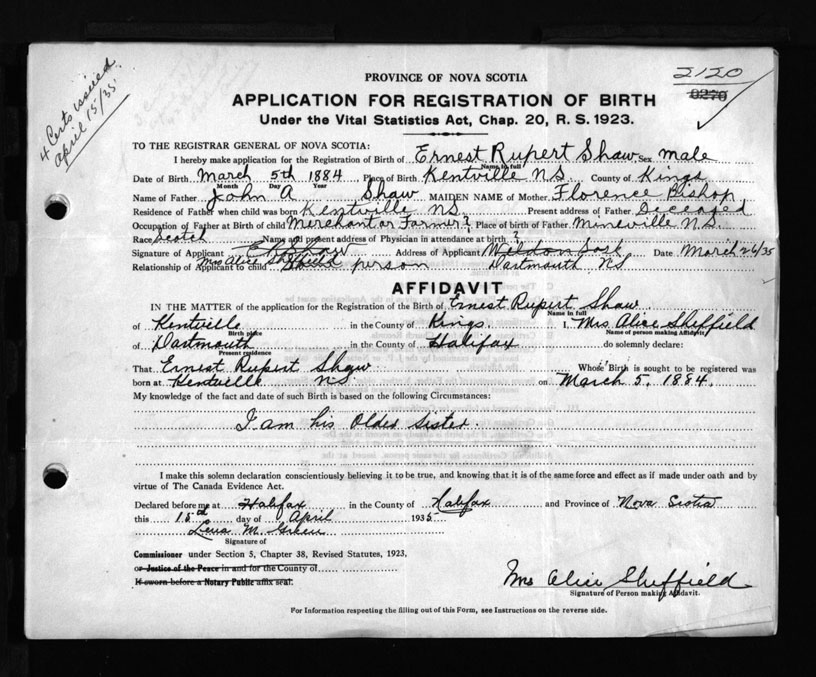 4 Certs issued
April 15/35
PROVINCE OF NOVA SCOTIA
2120
APPLICATION FOR REGISTRATION OF BIRTH
Under the Vital Statistics Act, Chap. 20, R. S. 1923.
TO THE REGISTRAR GENERAL OF NOVA SCOTIA:
I hereby make application for the Registration of Birth of Ernest Rupert Shaw Sex male
Name in full
Date of Birth March 5th 1884 Place of Birth Kentville N.S. County of Kings
Month Day Year
Name of Father John A Shaw MAIDEN NAME of Mother Florence Bishop
Residence of Father when child was born Kentville NS. Present address of Father Deceased
Occupation of Father at Birth of child Merchant or Farmer? Place of birth of Father Mineville N.S.
Race Scotch Name and present address of Physician in attendance at birth ?
Signature of Applicant E R Shaw Address of Applicant Date March 26/35
Mrs Alice Sheffield
Relationship of Applicant to child person Dartmouth NS
AFFIDAVIT
IN THE MATTER of the application for the Registration of the Birth of Ernest Rupert Shaw
Name in full
of Kentville in the County of Kings I, Mrs Alice Sheffield
Birth place Name of person making Affidavit
of Dartmouth in the County of Halifax do solemnly declare:
Present residence
That Ernest Rupert Shaw Whose Birth is sought to be registered was
born at Kentville N.S. on March 5, 1884.
My knowledge of the fact and date of such Birth is based on the following Circumstances:
I am his Older Sister.
I make this solemn declaration conscientiously believing it to be true, and knowing that it is of the same force and effect as if made under oath and by
virtue of The Canada Evidence Act.
Declared before me at Halifax in the County of Halifax and Province of Nova Scotia
this 15th day of April 1935
Lena M. Green
Signature of
Commissioner under Section 5, Chapter 38, Revised Statutes, 1923,
or Justice of the Peace in and for the County of
If sworn before a Notary Public affix seal.
Mrs Alice Sheffield
Signature of Person making Affidavit.
For Information respecting the filling out of this Form, see Instructions on the reverse side.